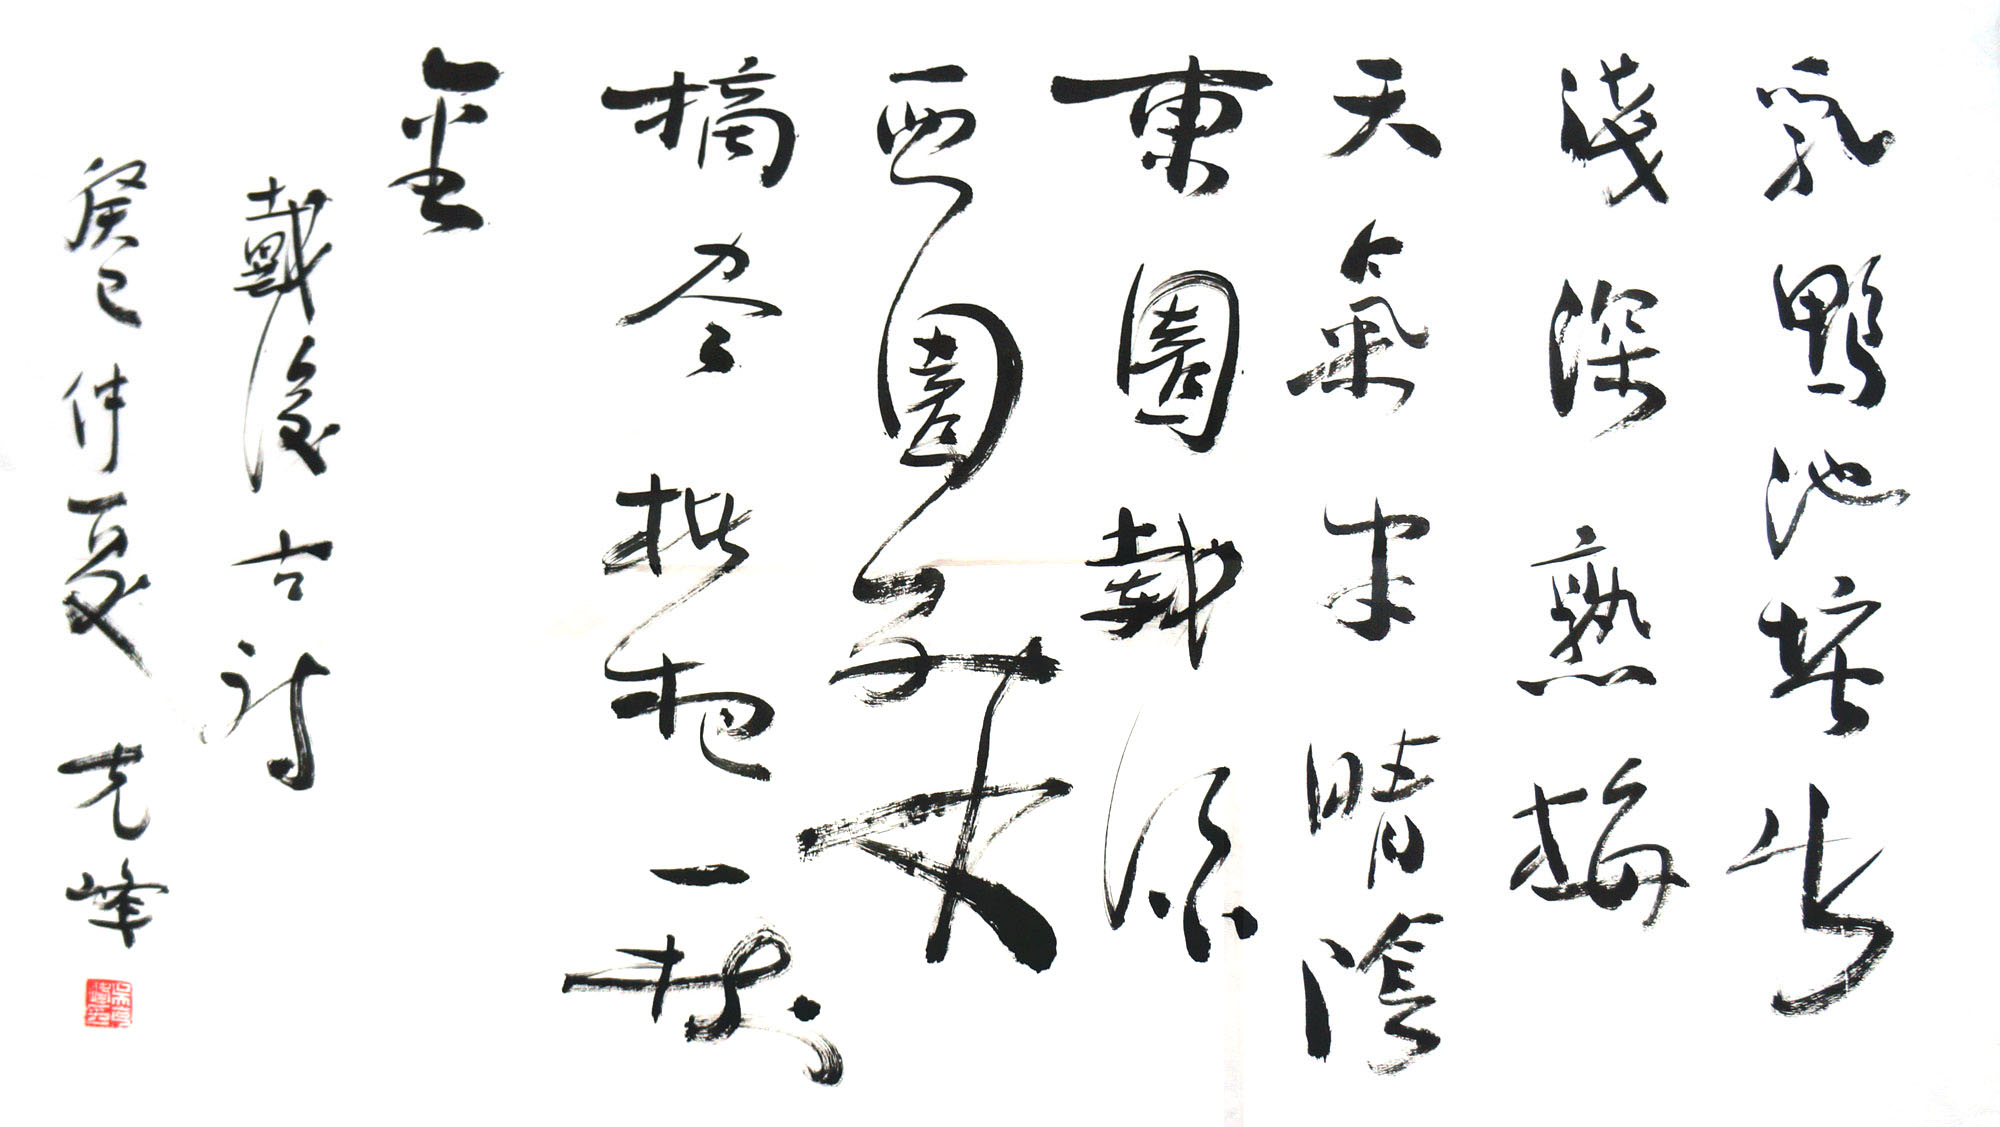 乳鴨池塘水
淺深熟梅
天氣半晴陰
東園載酒
西園醉
摘尽枇杷一樹
金
戴復古詩
癸巳仲夏 峰